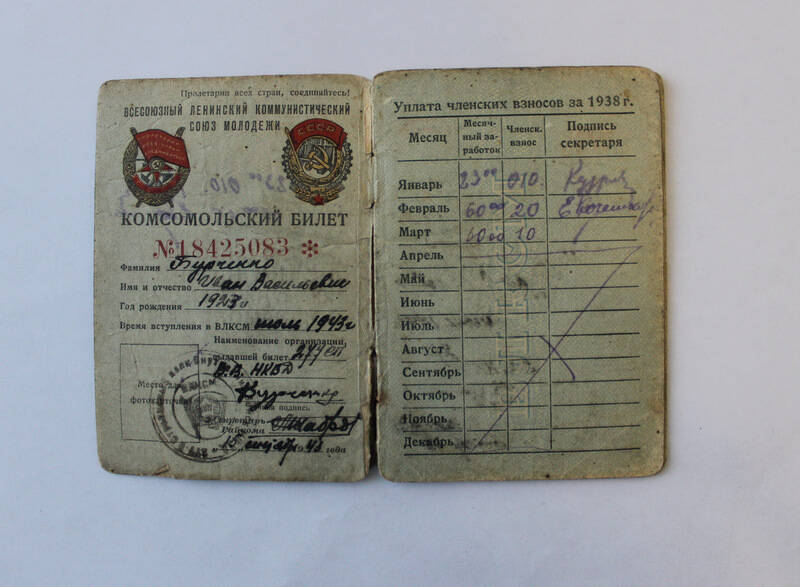 Пролетарии всех стран, соединяйтесь!
ВСЕСОЮЗНЫЙ ЛЕНИНСКИЙ КОММУНИСТИЧЕСКИЙ
СОЮЗ МОЛОДЕЖИ
СССР
КОМСОМОЛЬСКИЙ БИЛЕТ
№18425083 ✻
Фамилия
Имя и отчество Иван Васильевич
Год рождения
Время вступления в ВЛКСМ июль 1943 г
Наименование организации,
выдавшей билет
В.В. НКВД
Место для
фотокарточки
Личная подпись
Секретарь
Райкома
15 1943 года
Уплата членских взносов за 1938 г.
Месяц Месячный заработок Членск. взнос Подпись секретаря
Январь 23 00 010
Февраль 60 00 20
Март 60 00 10
Апрель
Май
Июнь
Июль
Август
Сентябрь
Октябрь
Ноябрь
Декабрь